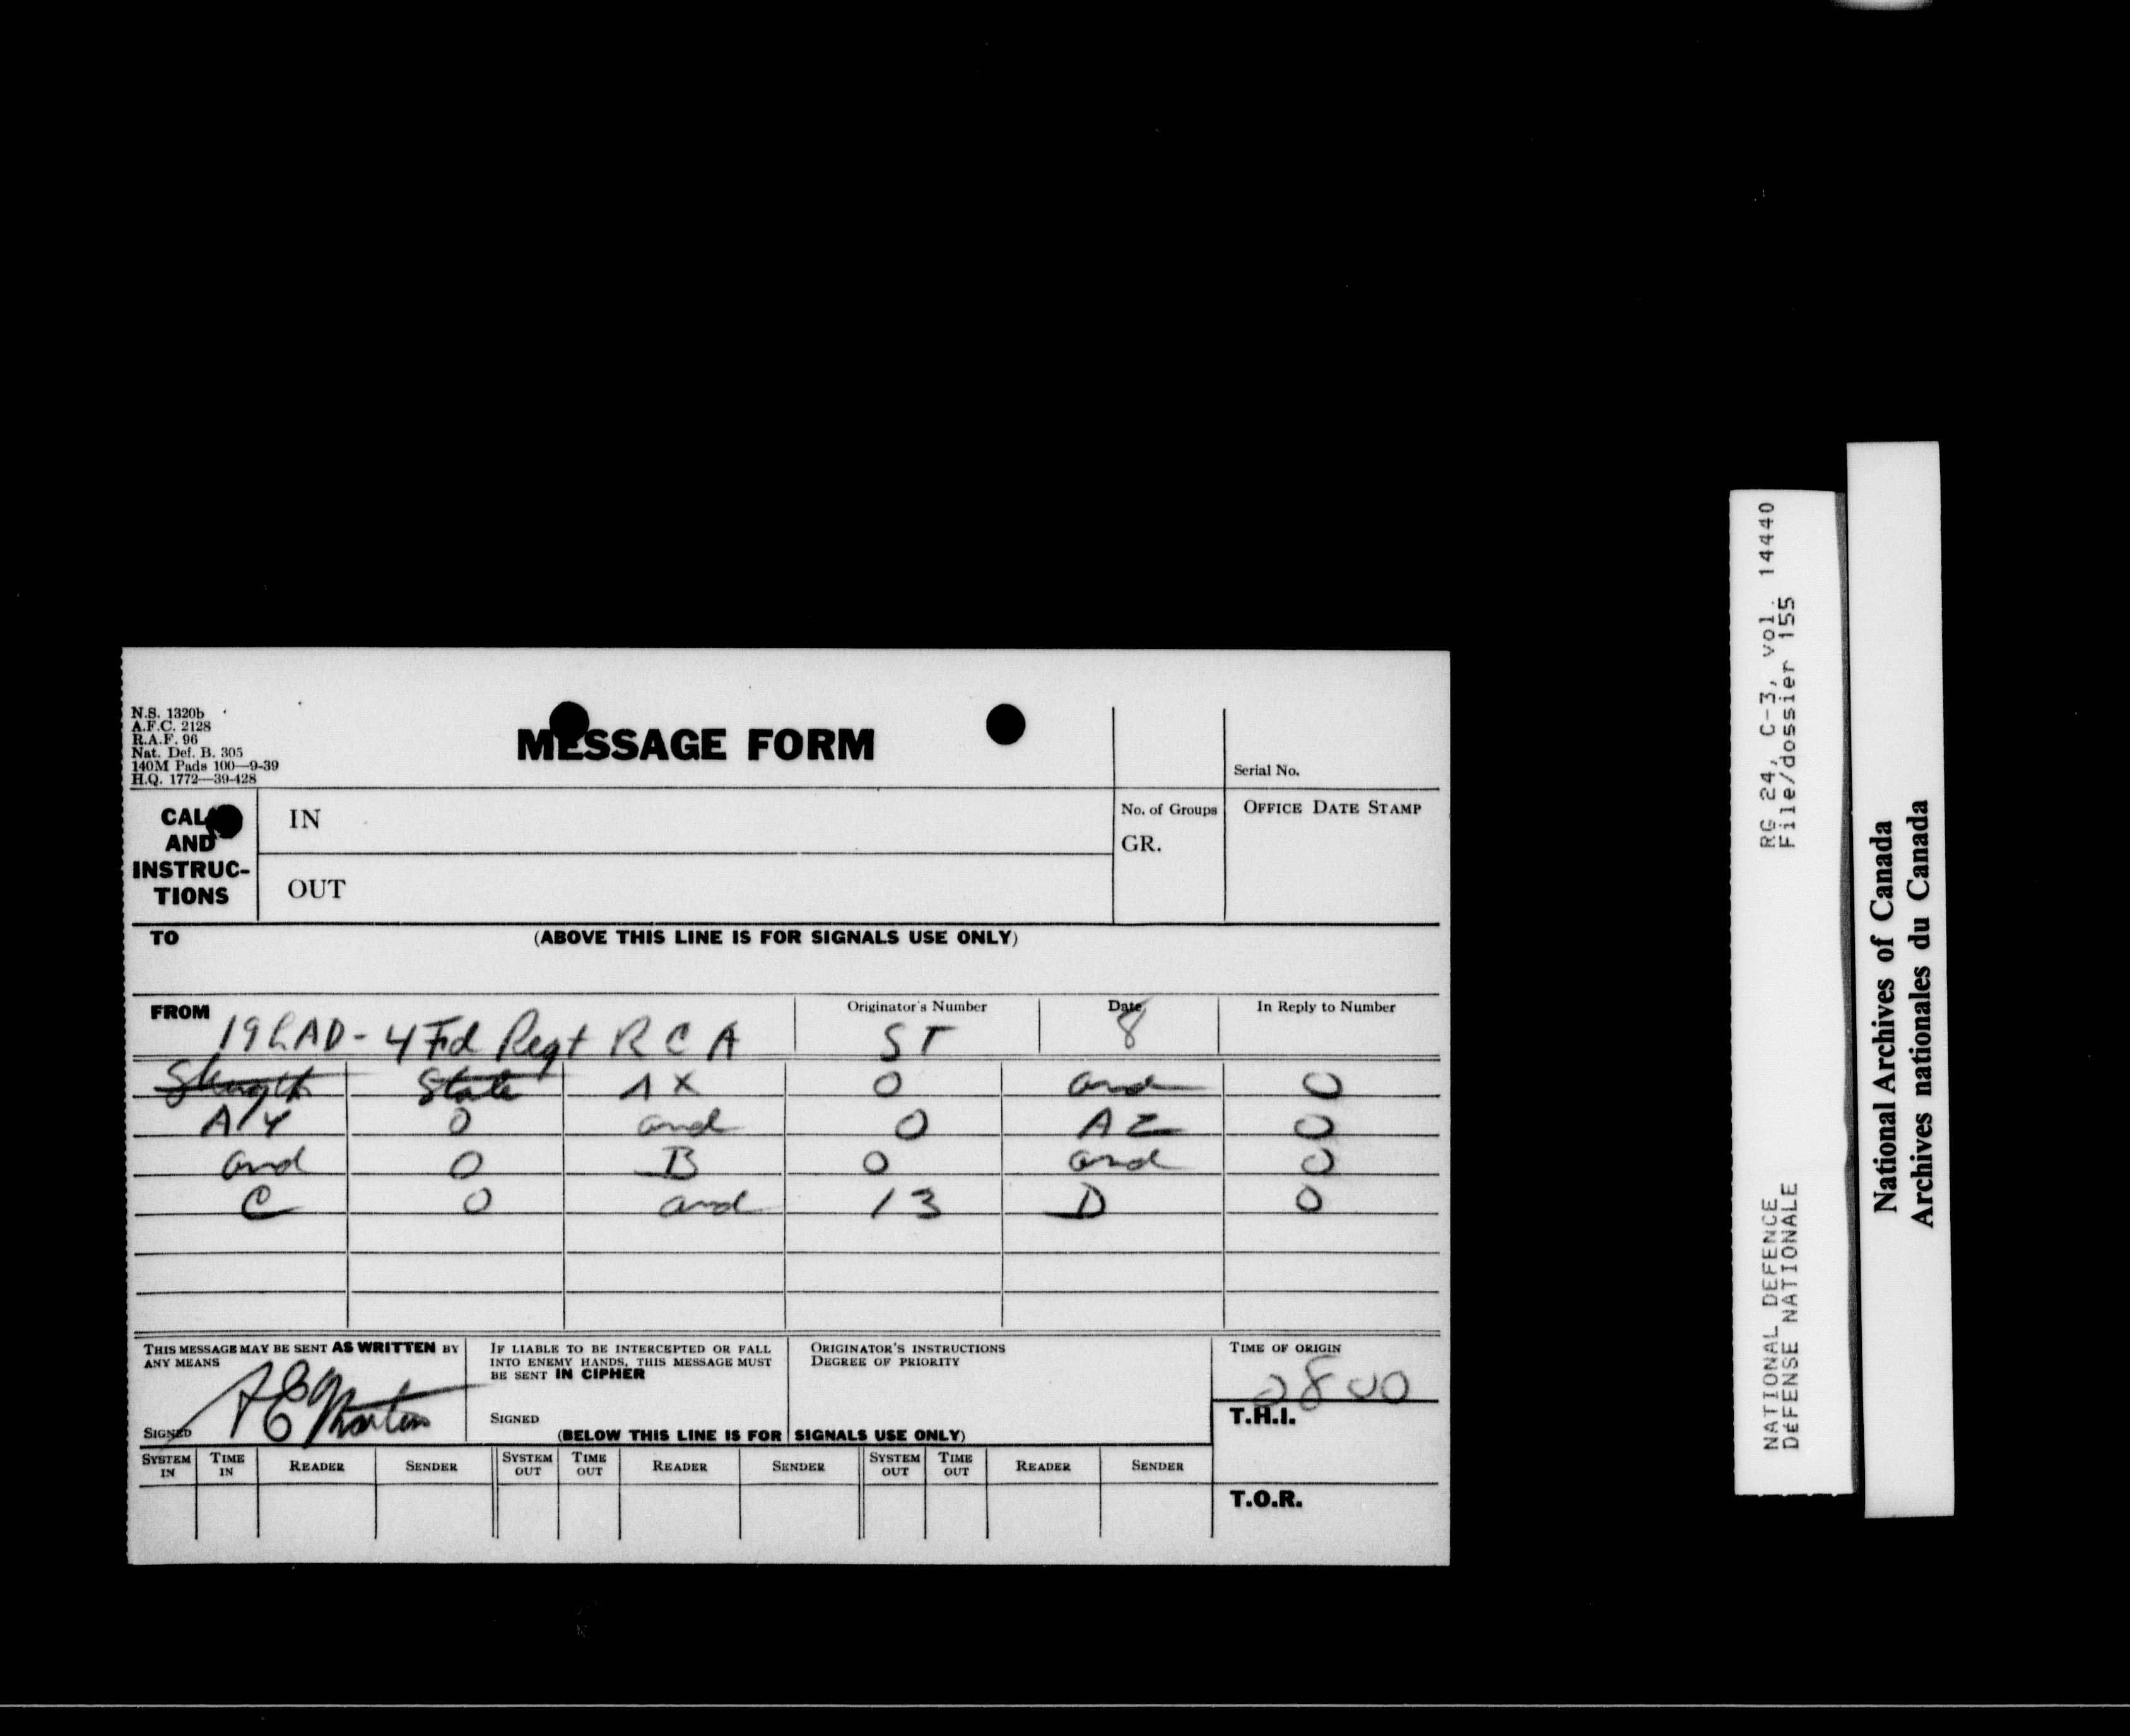 N.S. 1320b
A.F.C. 2128
R.A.F. 96
Nat. Def. B. 305
140M Pads 100—9-39
H.Q. 1772—39-428
MESSAGE FORM
Serial No.
CALL AND INSTRUC-TIONS
IN
OUT
No. of Groups
GR.
OFFICE DATE STAMP
TO (ABOVE THIS LINE IS FOR SIGNALS USE ONLY)
FROM 19 LAD - 4 Fd Regt R C A
Originator's Number ST
Date 8
In Reply to Number
Strength State AX 0 and 0
AY 0 and 0 AZ 0
and 0 B 0 and 0
C 0 and 13 D 0
THIS MESSAGE MAY BE SENT AS WRITTEN BY
ANY MEANS
SIGNED
IF LIABLE TO BE INTERCEPTED OR FALL
INTO ENEMY HANDS, THIS MESSAGE MUST
BE SENT IN CIPHER
SIGNED
ORIGINATOR'S INSTRUCTIONS
DEGREE OF PRIORITY
TIME OF ORIGIN
0800
T.H.I.
(BELOW THIS LINE IS FOR SIGNALS USE ONLY)
SYSTEM IN TIME IN READER SENDER SYSTEM OUT TIME OUT READER SENDER SYSTEM OUT TIME OUT READER SENDER
T.O.R.
RG 24, C-3, vol. 14440
File/dossier 155
NATIONAL DEFENCE
DÉFENSE NATIONALE
National Archives of Canada
Archives nationales du Canada